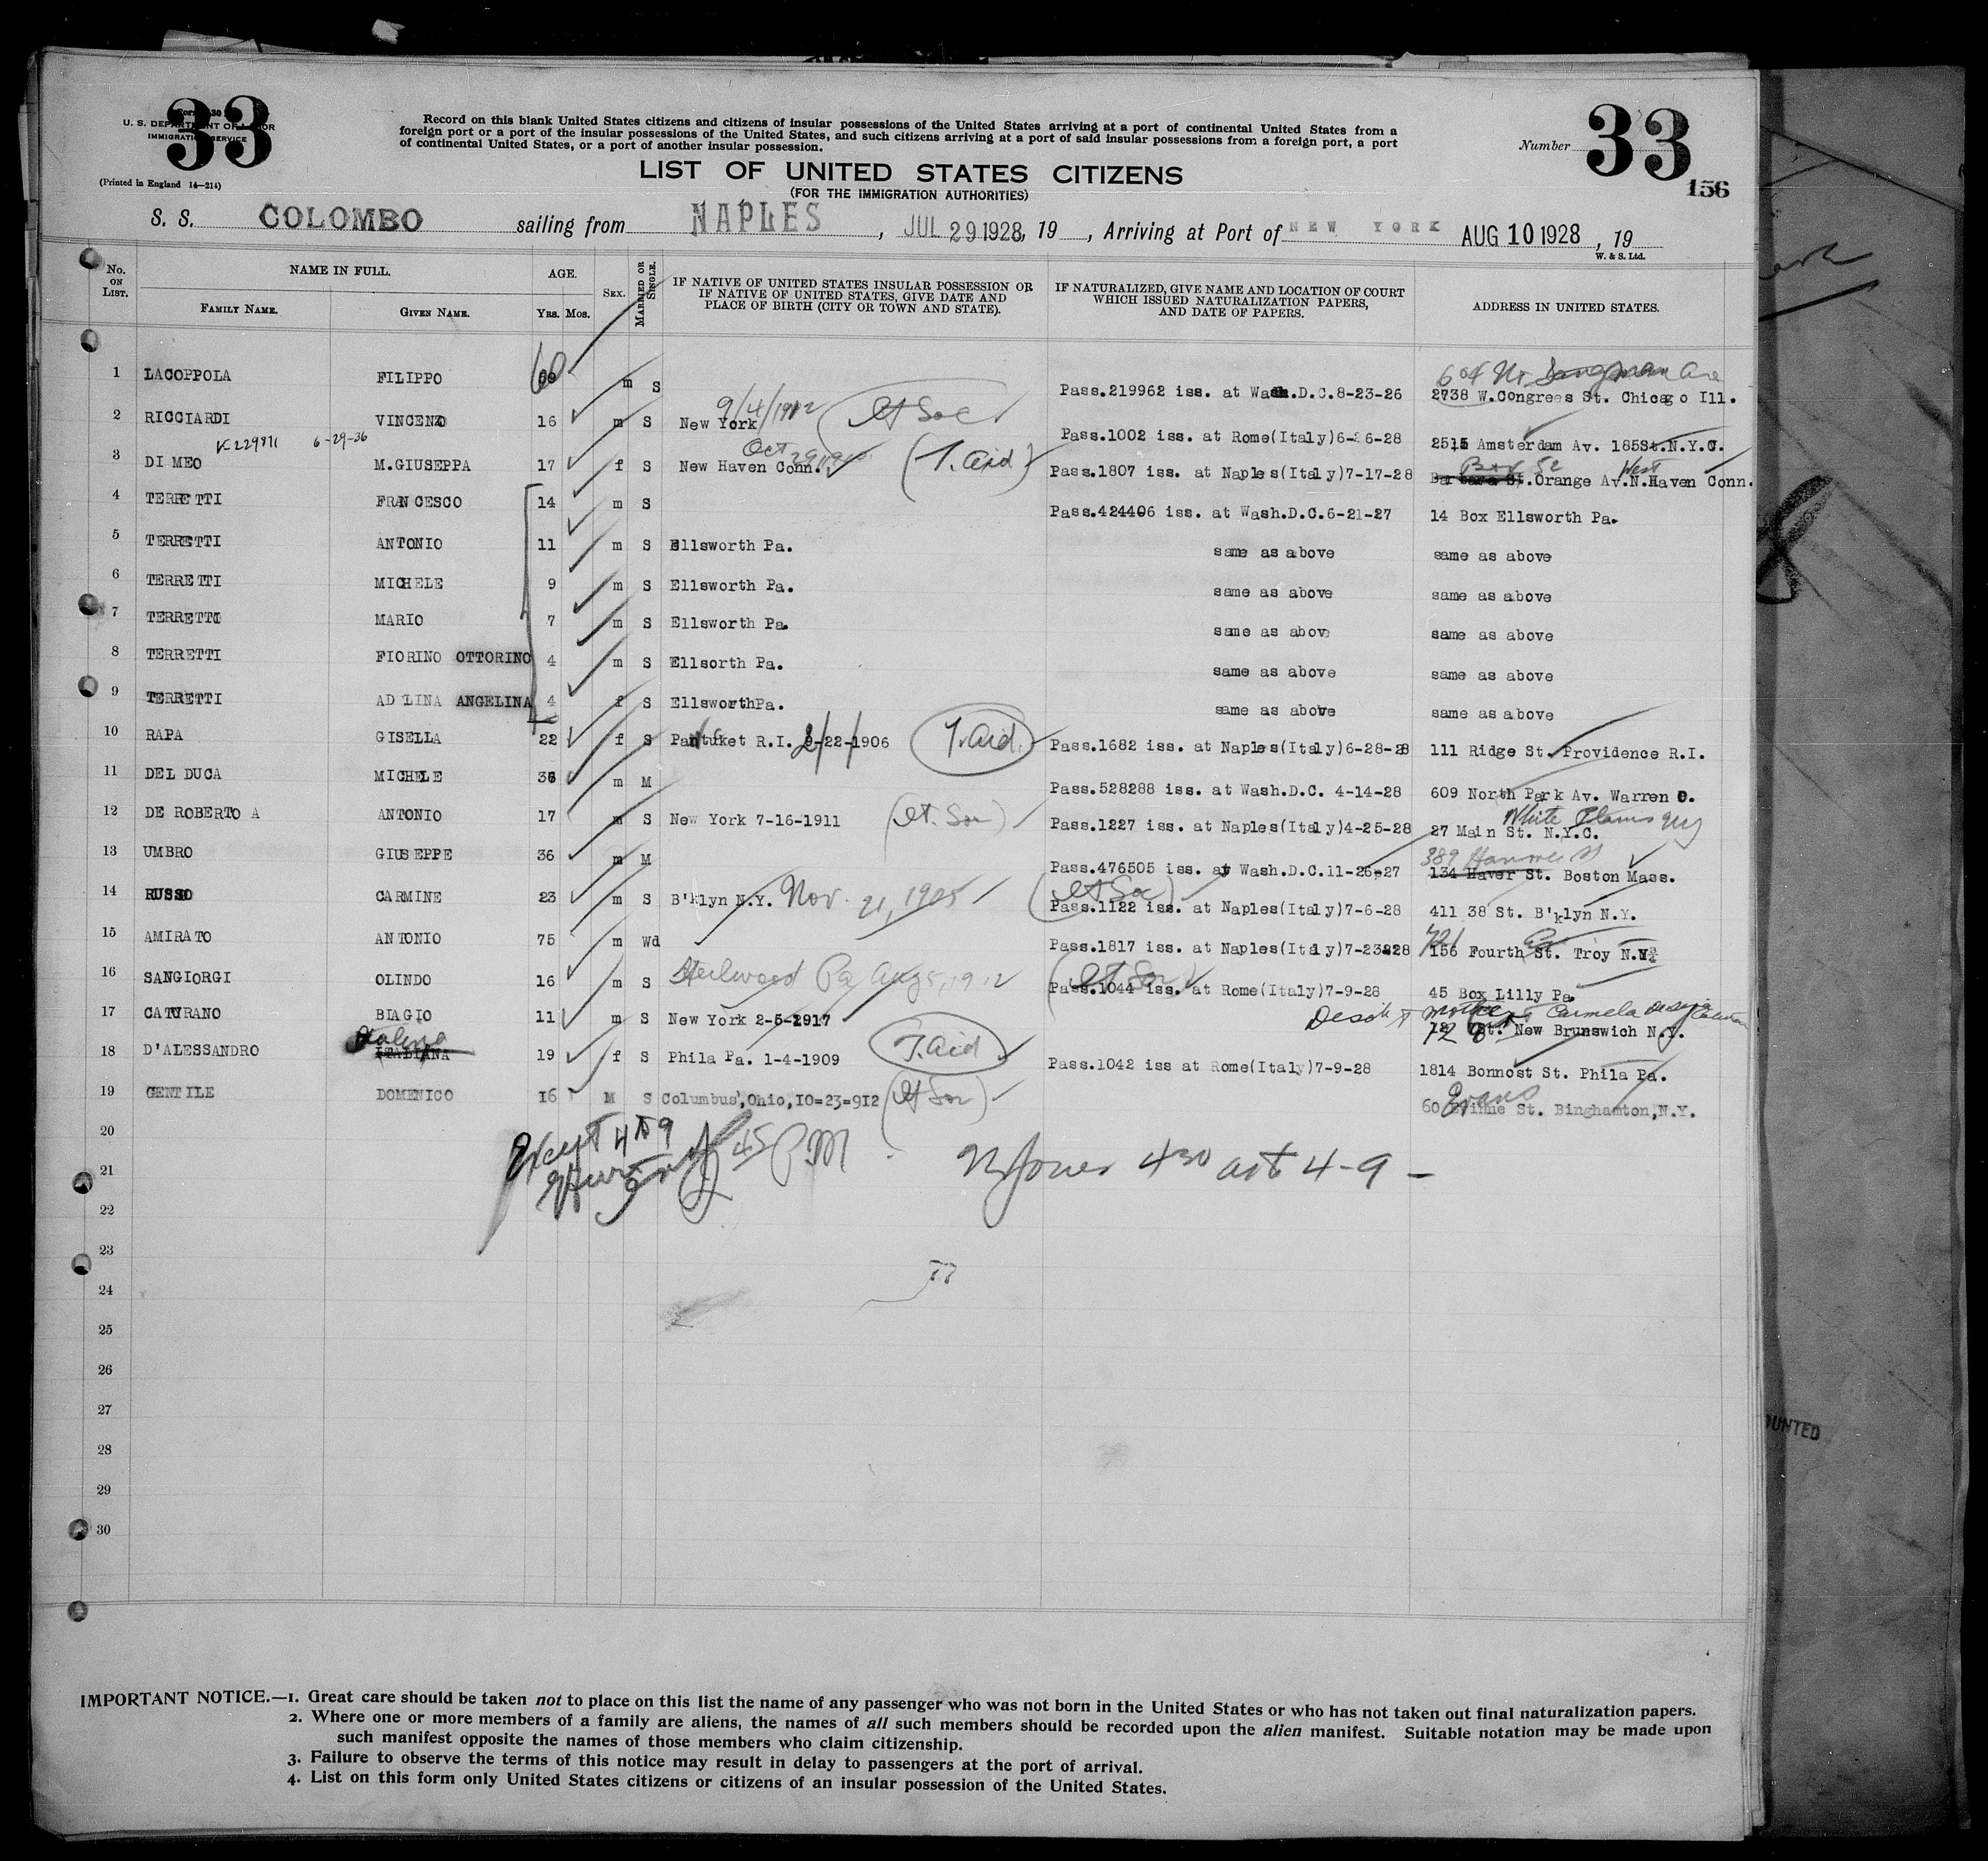 33
33
Form 630
U. S. DEPARTMENT OF LABOR
IMMIGRATION SERVICE
(Printed in England 14—214)
Record on this blank United States citizens and citizens of insular possessions of the United States arriving at a port of continental United States from a
foreign port or a port of the insular possessions of the United States, and such citizens arriving at a port of said insular possessions from a foreign port, a port
of continental United States, or a port of another insular possession.
Number
156
LIST OF UNITED STATES CITIZENS
(FOR THE IMMIGRATION AUTHORITIES)
S. S. COLOMBO sailing from NAPLES, JUL 29 1928, 19 , Arriving at Port of NEW YORK AUG 10 1928, 19
W. & S. Ltd.
No. ON LIST. NAME IN FULL. AGE. SEX. MARRIED OR SINGLE. IF NATIVE OF UNITED STATES INSULAR POSSESSION OR IF NATIVE OF UNITED STATES, GIVE DATE AND PLACE OF BIRTH (CITY OR TOWN AND STATE). IF NATURALIZED, GIVE NAME AND LOCATION OF COURT WHICH ISSUED NATURALIZATION PAPERS, AND DATE OF PAPERS. ADDRESS IN UNITED STATES.
FAMILY NAME. GIVEN NAME. YRS. MOS.
604
1 LACOPPOLA FILIPPO 60 m S Pass.219962 iss. at Wash.D.C.8-23-26 2738 W.Congrees St. Chicago Ill.
9/4/1912
2 RICCIARDI VINCENZO 16 m S New York Pass.1002 iss. at Rome(Italy)6-26-28 2515 Amsterdam Av. 185St.N.Y.C.
6-29-36
3 DI MEO M.GIUSEPPA 17 f S New Haven Conn. (T. Aid) Pass.1807 iss. at Naples(Italy)7-17-28 Barbara St.Orange Av.N.Haven Conn.
Box 52 West
4 TERRETTI FRANCESCO 14 m S Pass.424406 iss. at Wash.D.C.6-21-27 14 Box Ellsworth Pa.
5 TERRETTI ANTONIO 11 m S Ellsworth Pa. same as above same as above
6 TERRETTI MICHELE 9 m S Ellsworth Pa. same as above same as above
7 TERRETTI MARIO 7 m S Ellsworth Pa. same as above same as above
8 TERRETTI FIORINO OTTORINO 4 m S Ellsorth Pa. same as above same as above
9 TERRETTI AD LINA ANGELINA 4 f S EllsworthPa. same as above same as above
10 RAPA GISELLA 22 f S Pantuket R.I. 2-22-1906 T. Aid. Pass.1682 iss. at Naples(Italy)6-28-28 111 Ridge St. Providence R.I.
11 DEL DUCA MICHELE 36 m M Pass.528288 iss. at Wash.D.C. 4-14-28 609 North Park Av. Warren O.
White Plains NY
12 DE ROBERTO A ANTONIO 17 m S New York 7-16-1911 Pass.1227 iss. at Naples(Italy)4-25-28 27 Main St. N.Y.C.
389 Hanover St
13 UMBRO GIUSEPPE 36 m M Pass.476505 iss. at Wash.D.C.11-26-27 134 Haver St. Boston Mass.
14 RUSSO CARMINE 23 m S B'klyn N.Y. Nov. 21, 1905 Pass.1122 iss. at Naples(Italy)7-6-28 411 38 St. B'klyn N.Y.
15 AMIRATO ANTONIO 75 m Wd Pass.1817 iss. at Naples(Italy)7-23-28 156 Fourth St. Troy N.Y.
16 SANGIORGI OLINDO 16 m S Pa Aug 5, 1912 Pass.1044 iss. at Rome(Italy)7-9-28 45 Box Lilly Pa.
mother Carmela
17 CATURANO BIAGIO 11 m S New York 2-5-1917 St. New Brunswich N.J.
Italina
18 D'ALESSANDRO ITALIANA 19 f S Phila Pa. 1-4-1909 T. Aid Pass.1042 iss at Rome(Italy)7-9-28 1814 Bonnost St. Phila Pa.
19 GENTILE DOMENICO 16 M S Columbus',Ohio,IO=23=9I2 60 Evans St. Binghamton,N.Y.
20
Except 4 to 9
45 PM
21
22
23
24
77
25
26
27
28
29
30
IMPORTANT NOTICE.—1. Great care should be taken not to place on this list the name of any passenger who was not born in the United States or who has not taken out final naturalization papers.
2. Where one or more members of a family are aliens, the names of all such members should be recorded upon the alien manifest. Suitable notation may be made upon
such manifest opposite the names of those members who claim citizenship.
3. Failure to observe the terms of this notice may result in delay to passengers at the port of arrival.
4. List on this form only United States citizens or citizens of an insular possession of the United States.